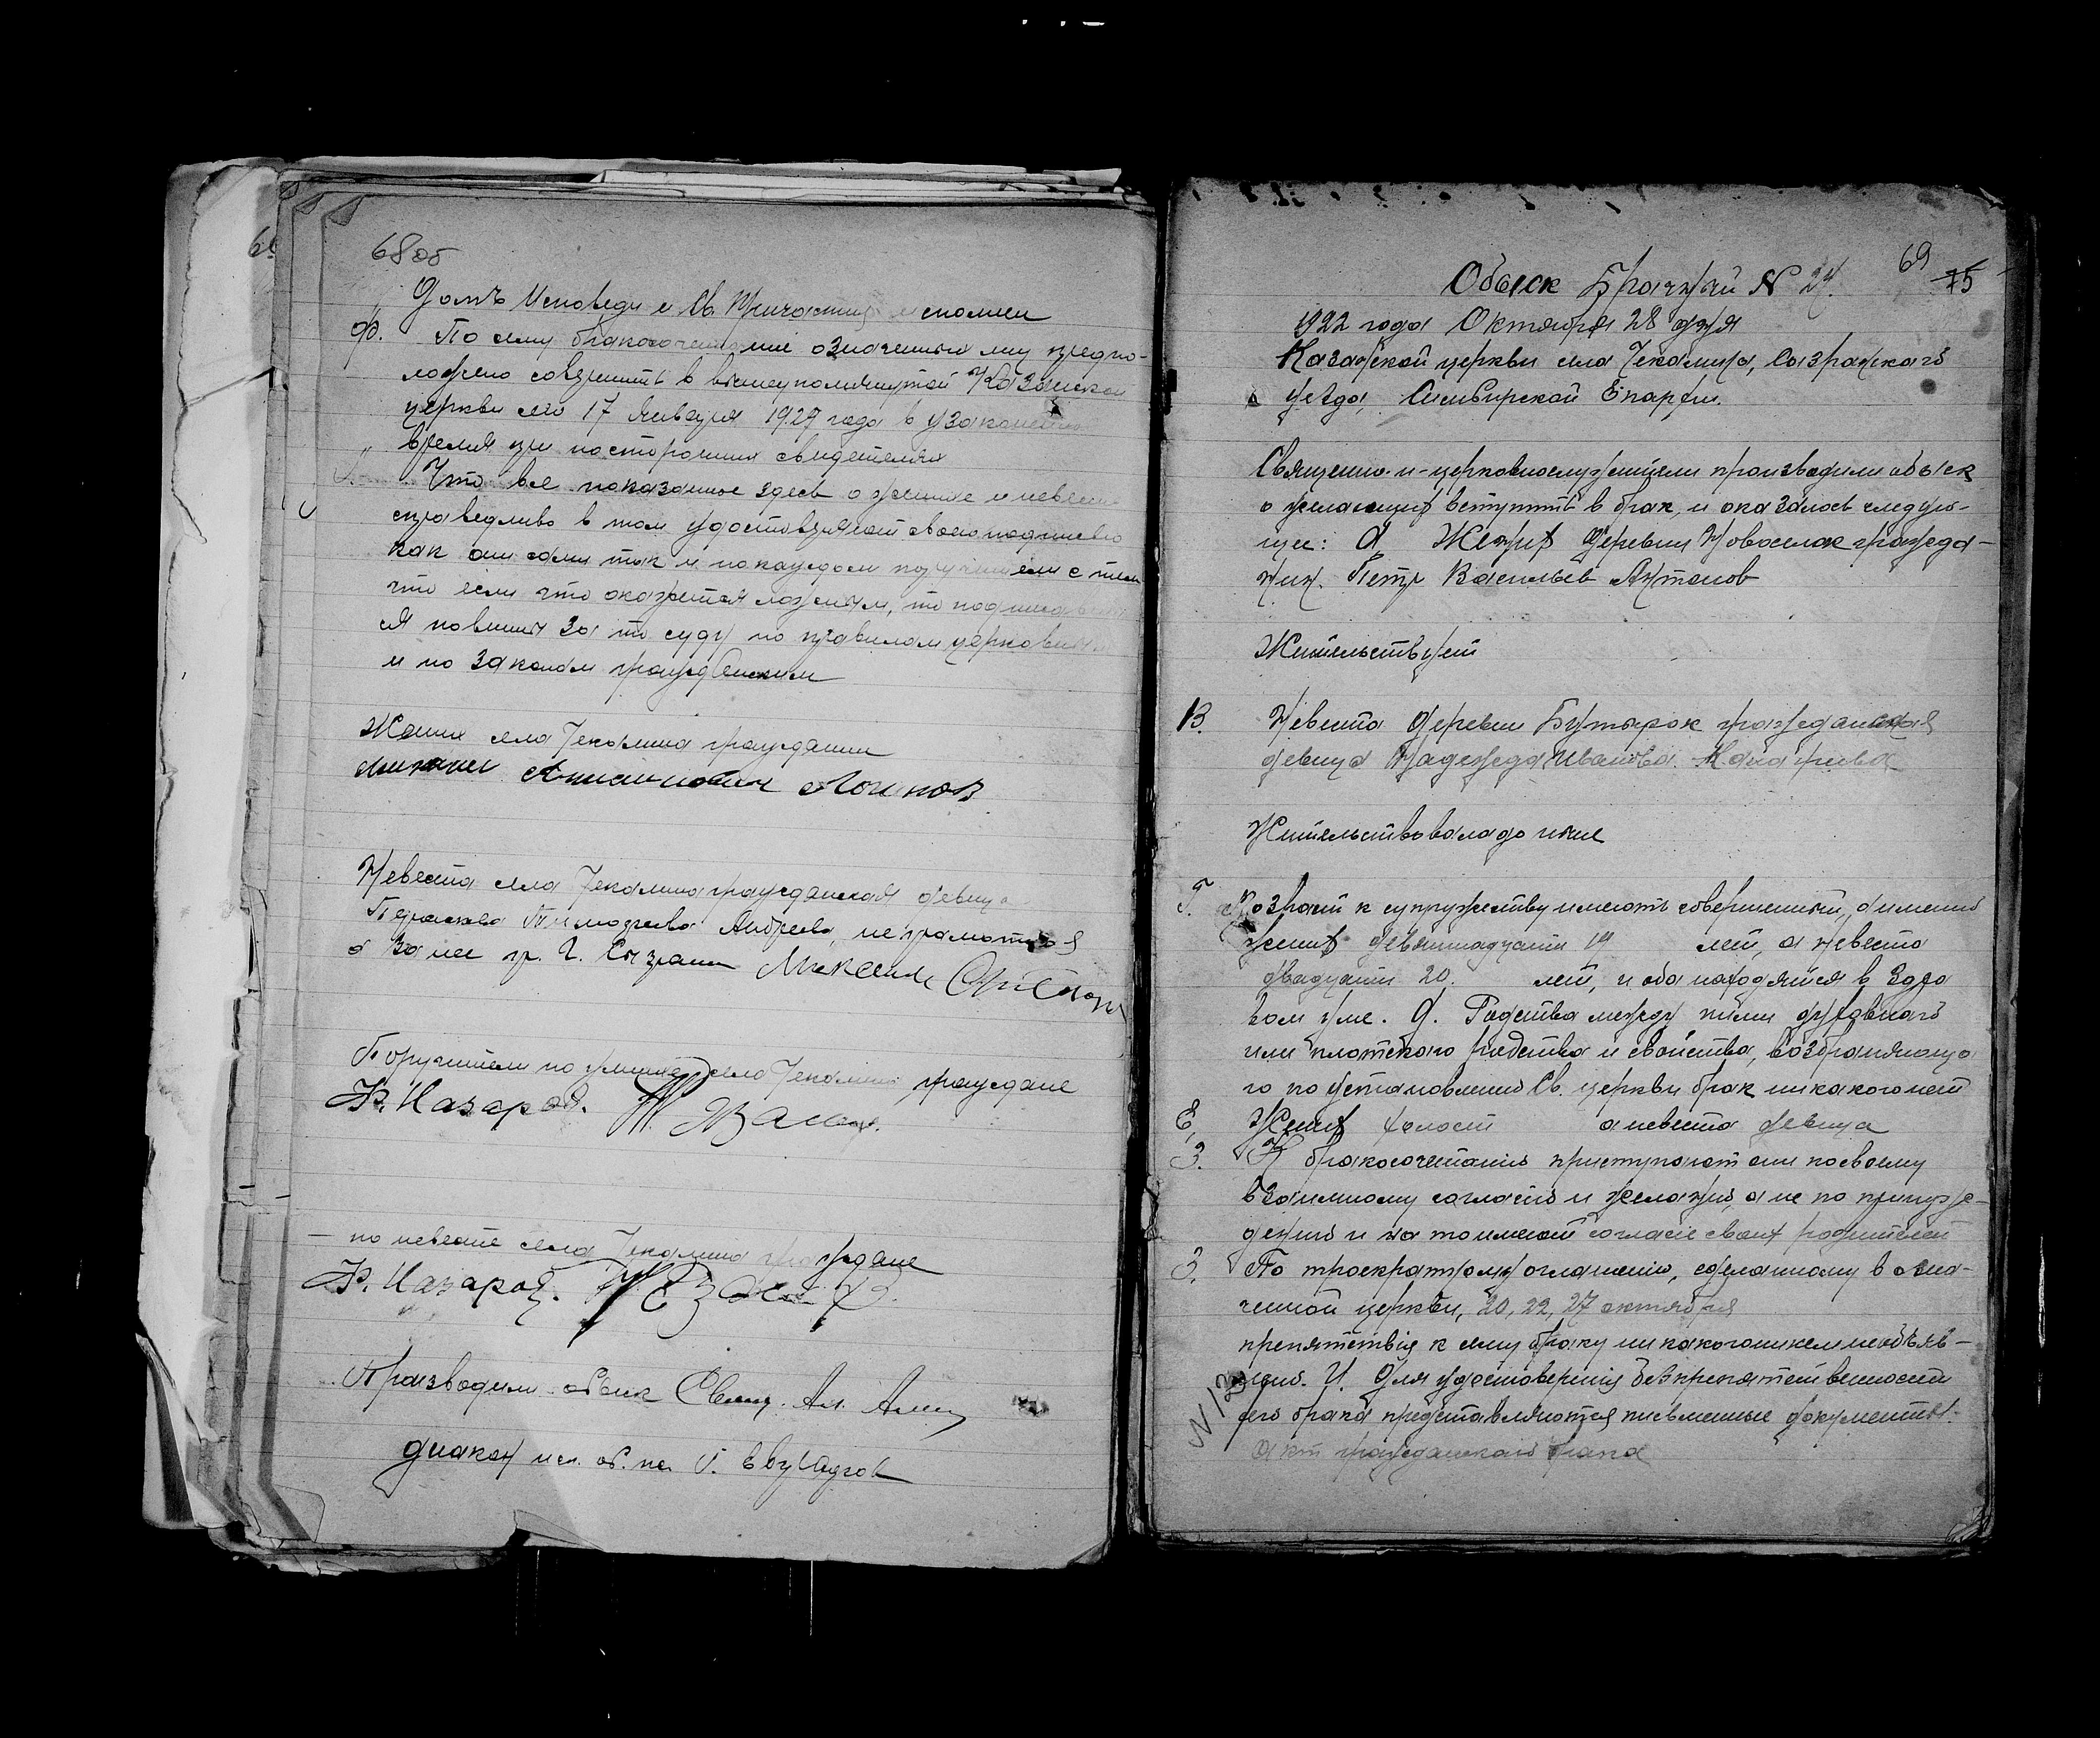 68 об
Долгъ Исповеди и Св. Причастия исполнен
Ф. По сему бракосочетание означенных лиц предпо-
ложено совершить в вышеупомянутой Казанской
церкви сего 17 Января 1927 года в узаконенное
время при посторонних свидетелях
Что все показанное здесь о женихе и невесте
справедливо в том удостоверяют своею подписью
как они сами так и по каждом поручители с тем
что если что окажется ложным, то подписавшие
ся повинны за то суду по правилам церковным
и по законам гражданским
Жених села Чекалина гражданин
Логинов
Невеста села Чекалина гражданская девица
Андреева, неграмотная
а за нее гр. г. Сызрани Максим
Поручители по женихе села Чекалина граждане
Ф. Назаров.
— по невесте села Чекалина граждане
Ф. Назаров.
Производили обыск Свящ. Ал.
диакон исп. об. пс.
69
75
Обыск Брачный № 24.
1922 года Октября 28 дня
Казанской церкви села Чекалина, Сызранскаго
уезда, Симбирской Епархии.
Священно-и-церковнослужители производили обыск
о желающих вступить в брак, и оказалось следую-
щее: А Жених Деревни Новоселок гражда-
нин. Петр Васильев Антонов
Жительствует
В. Невеста деревни Бутырок гражданская
девица Надежда Иванова
Жительствовала до ныне
Г. Возраст к супружеству имеютъ совершенный, а именно
жених девятнадцати 19 лет, а невеста
двадцати 20. лет, и оба находятся в здра
вом уме. Д. Родства между ними духовнаго
или плотского родства и свойства, возбраняюща
го по установлению Св. церкви брак никакого нет
Е, Жених холост а невеста девица
З. К бракосочетанию приступают они по своему
взаимному согласию и желанию, а не по принуж-
дению и на то имеют согласие своих родителей
З. По троекратному оглашению, сделанному в озна-
ченной церкви, 20, 22, 27 октября
препятствия к сему браку никакого никем не объяв-
лено. И. Для удостоверения безпрепятственности
сего брака представляются письменные документы.
акт гражданскаго брака
N 12